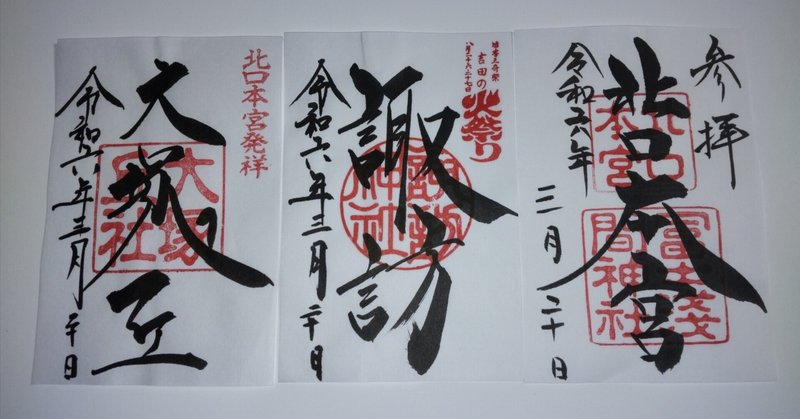 参拝
北口本宮
北口
本宮
冨士浅
間神社
令和六年
三月二十日
日本三奇祭
吉田の
火祭り
八月二十六、二十七日
諏訪
諏訪
神社
令和六年三月二十日
北口本宮発祥
大塚丘
大塚
丘社
令和六年三月二十日